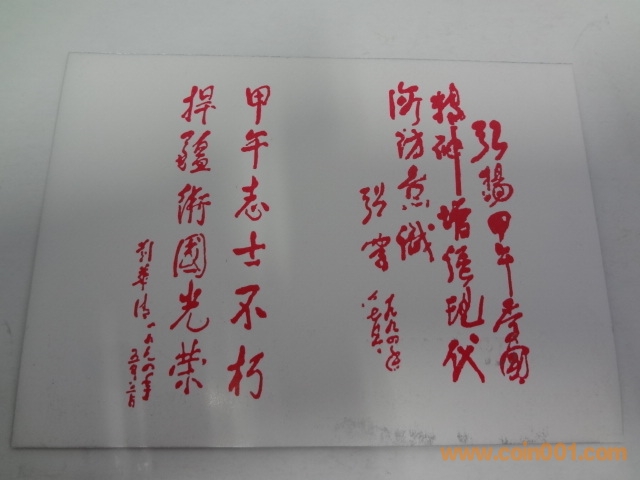 弘揚甲午爱國
精神增强现代
海防意識
张震
一九九四年
甲午志士不朽
捍疆衛國光荣
刘華清 一九九四年
www.coin001.com